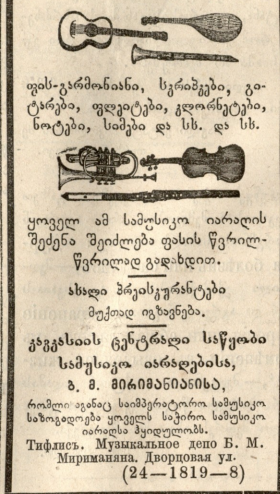 ფის-გარმონიანი, სკრიპკები, გი-
ტარები, ფლეიტები, კლორნეტები,
ნოტები, სიმები და სხ. და სხ.
ყოველ ამ სამუსიკო იარაღის
შეძენა შეიძლება ფასის წვრილ-
წვრილად გადახდით.
ახალი პრეისკურანტები
მუქთად იგზავნება.
კავკასიის ცენტრალი საწყობი
სამუსიკო იარაღებისა,
ბ. მ. მირიმანიანისა,
რომლიდგანაც საიმპერატორო სამუსიკო
საზოგადოება ყოველს საჭირო სამუსიკო
იარაღსა ჰყიდულობს.
Тифлисъ. Музыкальное депо Б. М.
Мириманяна. Дворцовая ул.
(24—1819—8)